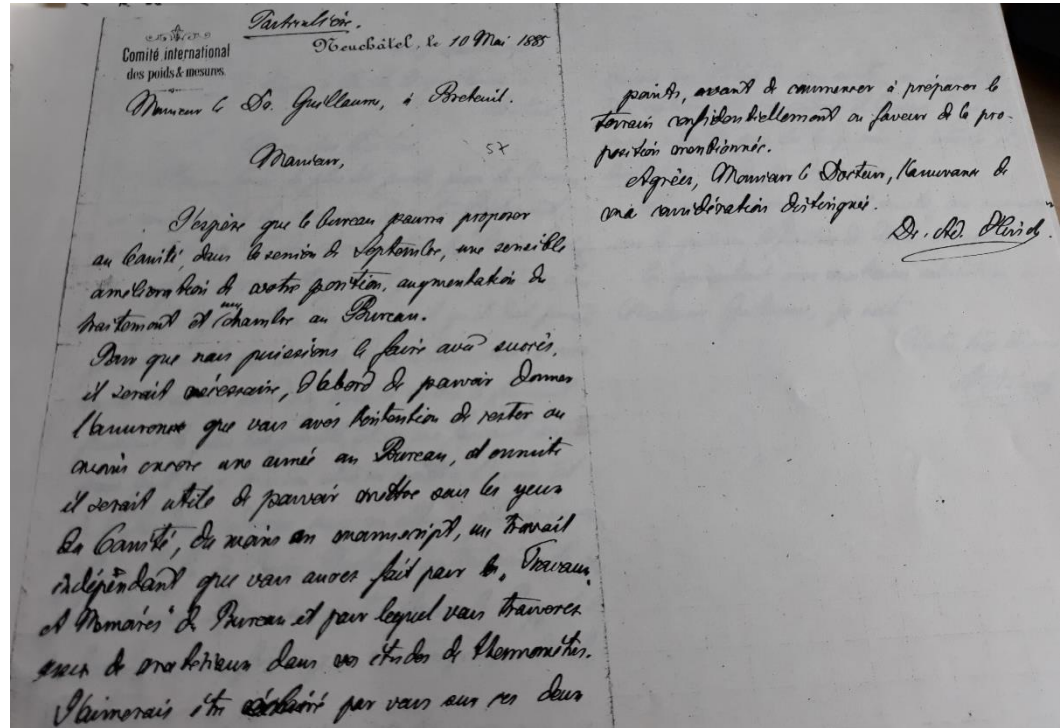 Particulière.
Comité international
des poids & mesures
Neuchâtel, le 10 Mai 1885
Monsieur le Dr. Guillaume, à Breteuil.
57
Monsieur,
J'espère que le bureau pourra proposer
au Comité, dans la session de Septembre, une sensible
amélioration de votre position, augmentation de
traitement et une chambre au Bureau.
Pour que nous puissions le faire avec succès,
il serait nécessaire, d'abord de pouvoir donner
l'assurance que vous avez l'intention de rester au
moins encore une année au Bureau, et ensuite
il serait utile de pouvoir mettre sous les yeux
du Comité, du moins en manuscript, un travail
indépendant que vous aurez fait pour les „Travaux
et Mémoires" du Bureau et pour lequel vous trouverez
assez de matériaux dans vos études de thermomètres.
J'aimerais être éclairé par vous sur ces deux
points, avant de commencer à préparer le
terrain confidentiellement en faveur de la pro-
position mentionnée.
Agréez, Monsieur le Docteur, l'assurance de
ma considération distinguée.
Dr. Ad. Hirsch.